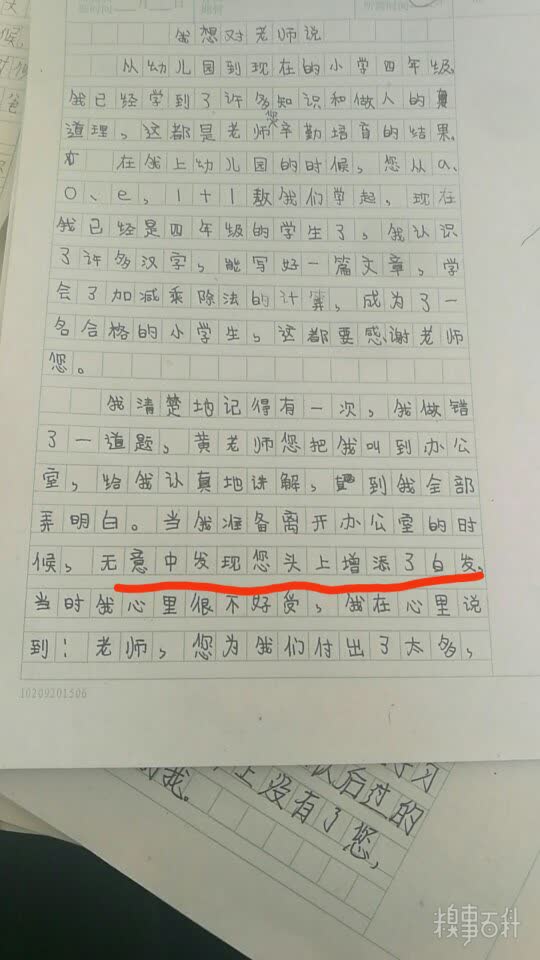 我想对老师说
从幼儿园到现在的小学四年级,
我已经学到了许多知识和做人的
道理,这都是老师您辛勤培育的结果。
在我上幼儿园的时候,您从a、
o、e,1+1教我们学起,现在
我已经是四年级的学生了,我认识
了许多汉字,能写好一篇文章,学
会了加减乘除法的计算,成为了一
名合格的小学生,这都要感谢老师
您。
我清楚地记得有一次,我做错
了一道题,黄老师您把我叫到办公
室,给我认真地讲解,直到我全部
弄明白。当我准备离开办公室的时
候,无意中发现您头上增添了白发。
当时我心里很不好受,我在心里说
到:老师,您为我们付出了太多,
10209201506
学习
以后过的
上没有了您,
的我。
候。
爸
糗事百科